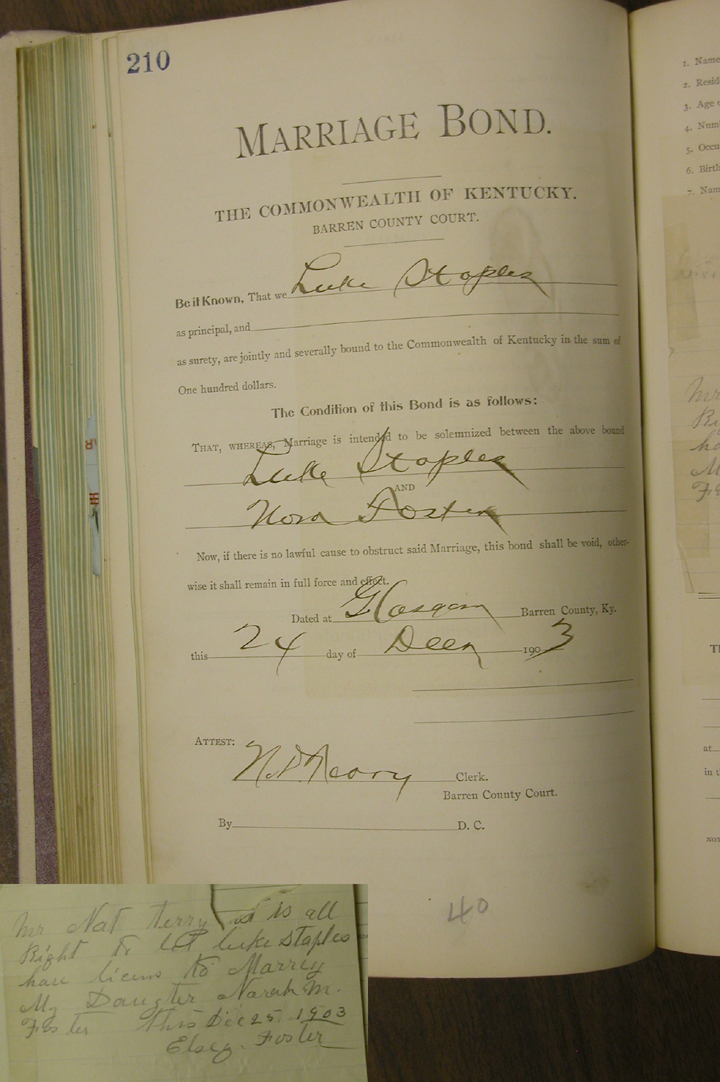 210
MARRIAGE BOND.
THE COMMONWEALTH OF KENTUCKY.
BARREN COUNTY COURT.
Be it Known, That we Luke Staples
as principal, and
as surety, are jointly and severally bound to the Commonwealth of Kentucky in the sum of
One hundred dollars.
The Condition of this Bond is as follows:
THAT, WHEREAS, Marriage is intended to be solemnized between the above bound
Luke Staples
AND
Nora Foster
Now, if there is no lawful cause to obstruct said Marriage, this bond shall be void, other-
wise it shall remain in full force and effect.
Dated at Glasgow Barren County, Ky.
this 24 day of Decr 1903
ATTEST:
Clerk.
Barren County Court.
By D. C.
40
Mr Nat terry it is all
Right to let luke staples
hav licens to Marrey
My Daugter Narah M.
Foster this Dec 25 1903
Foster
1. Name
2. Resid
3. Age o
4. Num
5. Occu
6. Birth
7. Nam
Mr
Ri
ha
M
Fo
TH
at
in t